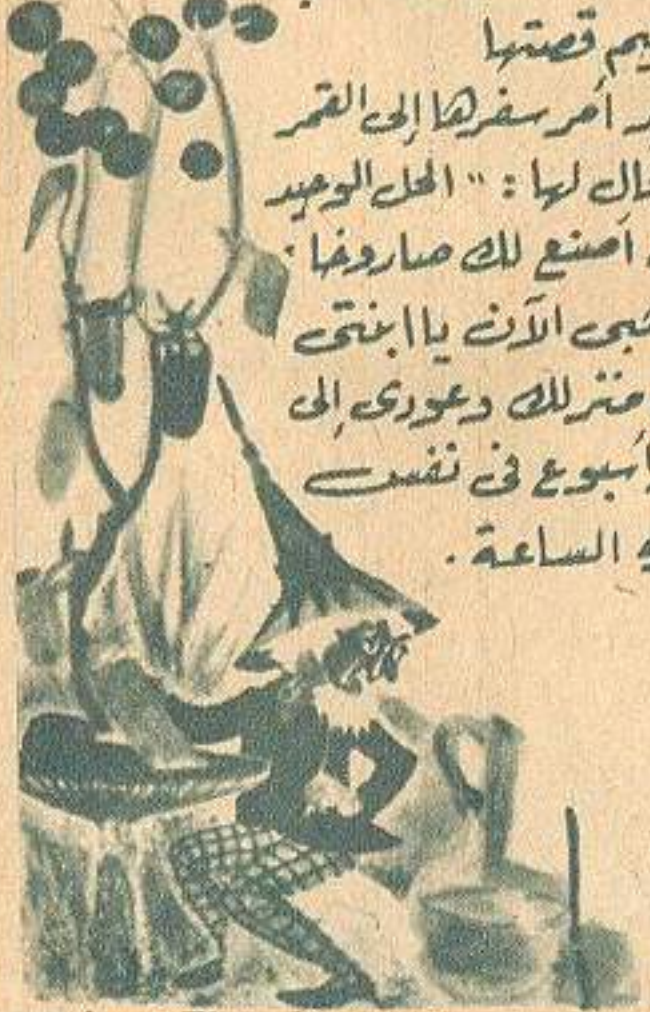 قصتها
أمر سفرها إلى القمر
لها : " الحل الوحيد
أصنع لك صاروخا .
الآن يا ابنتى
منزلك وعودى إلى
أسبوع فى نفس
الساعة .